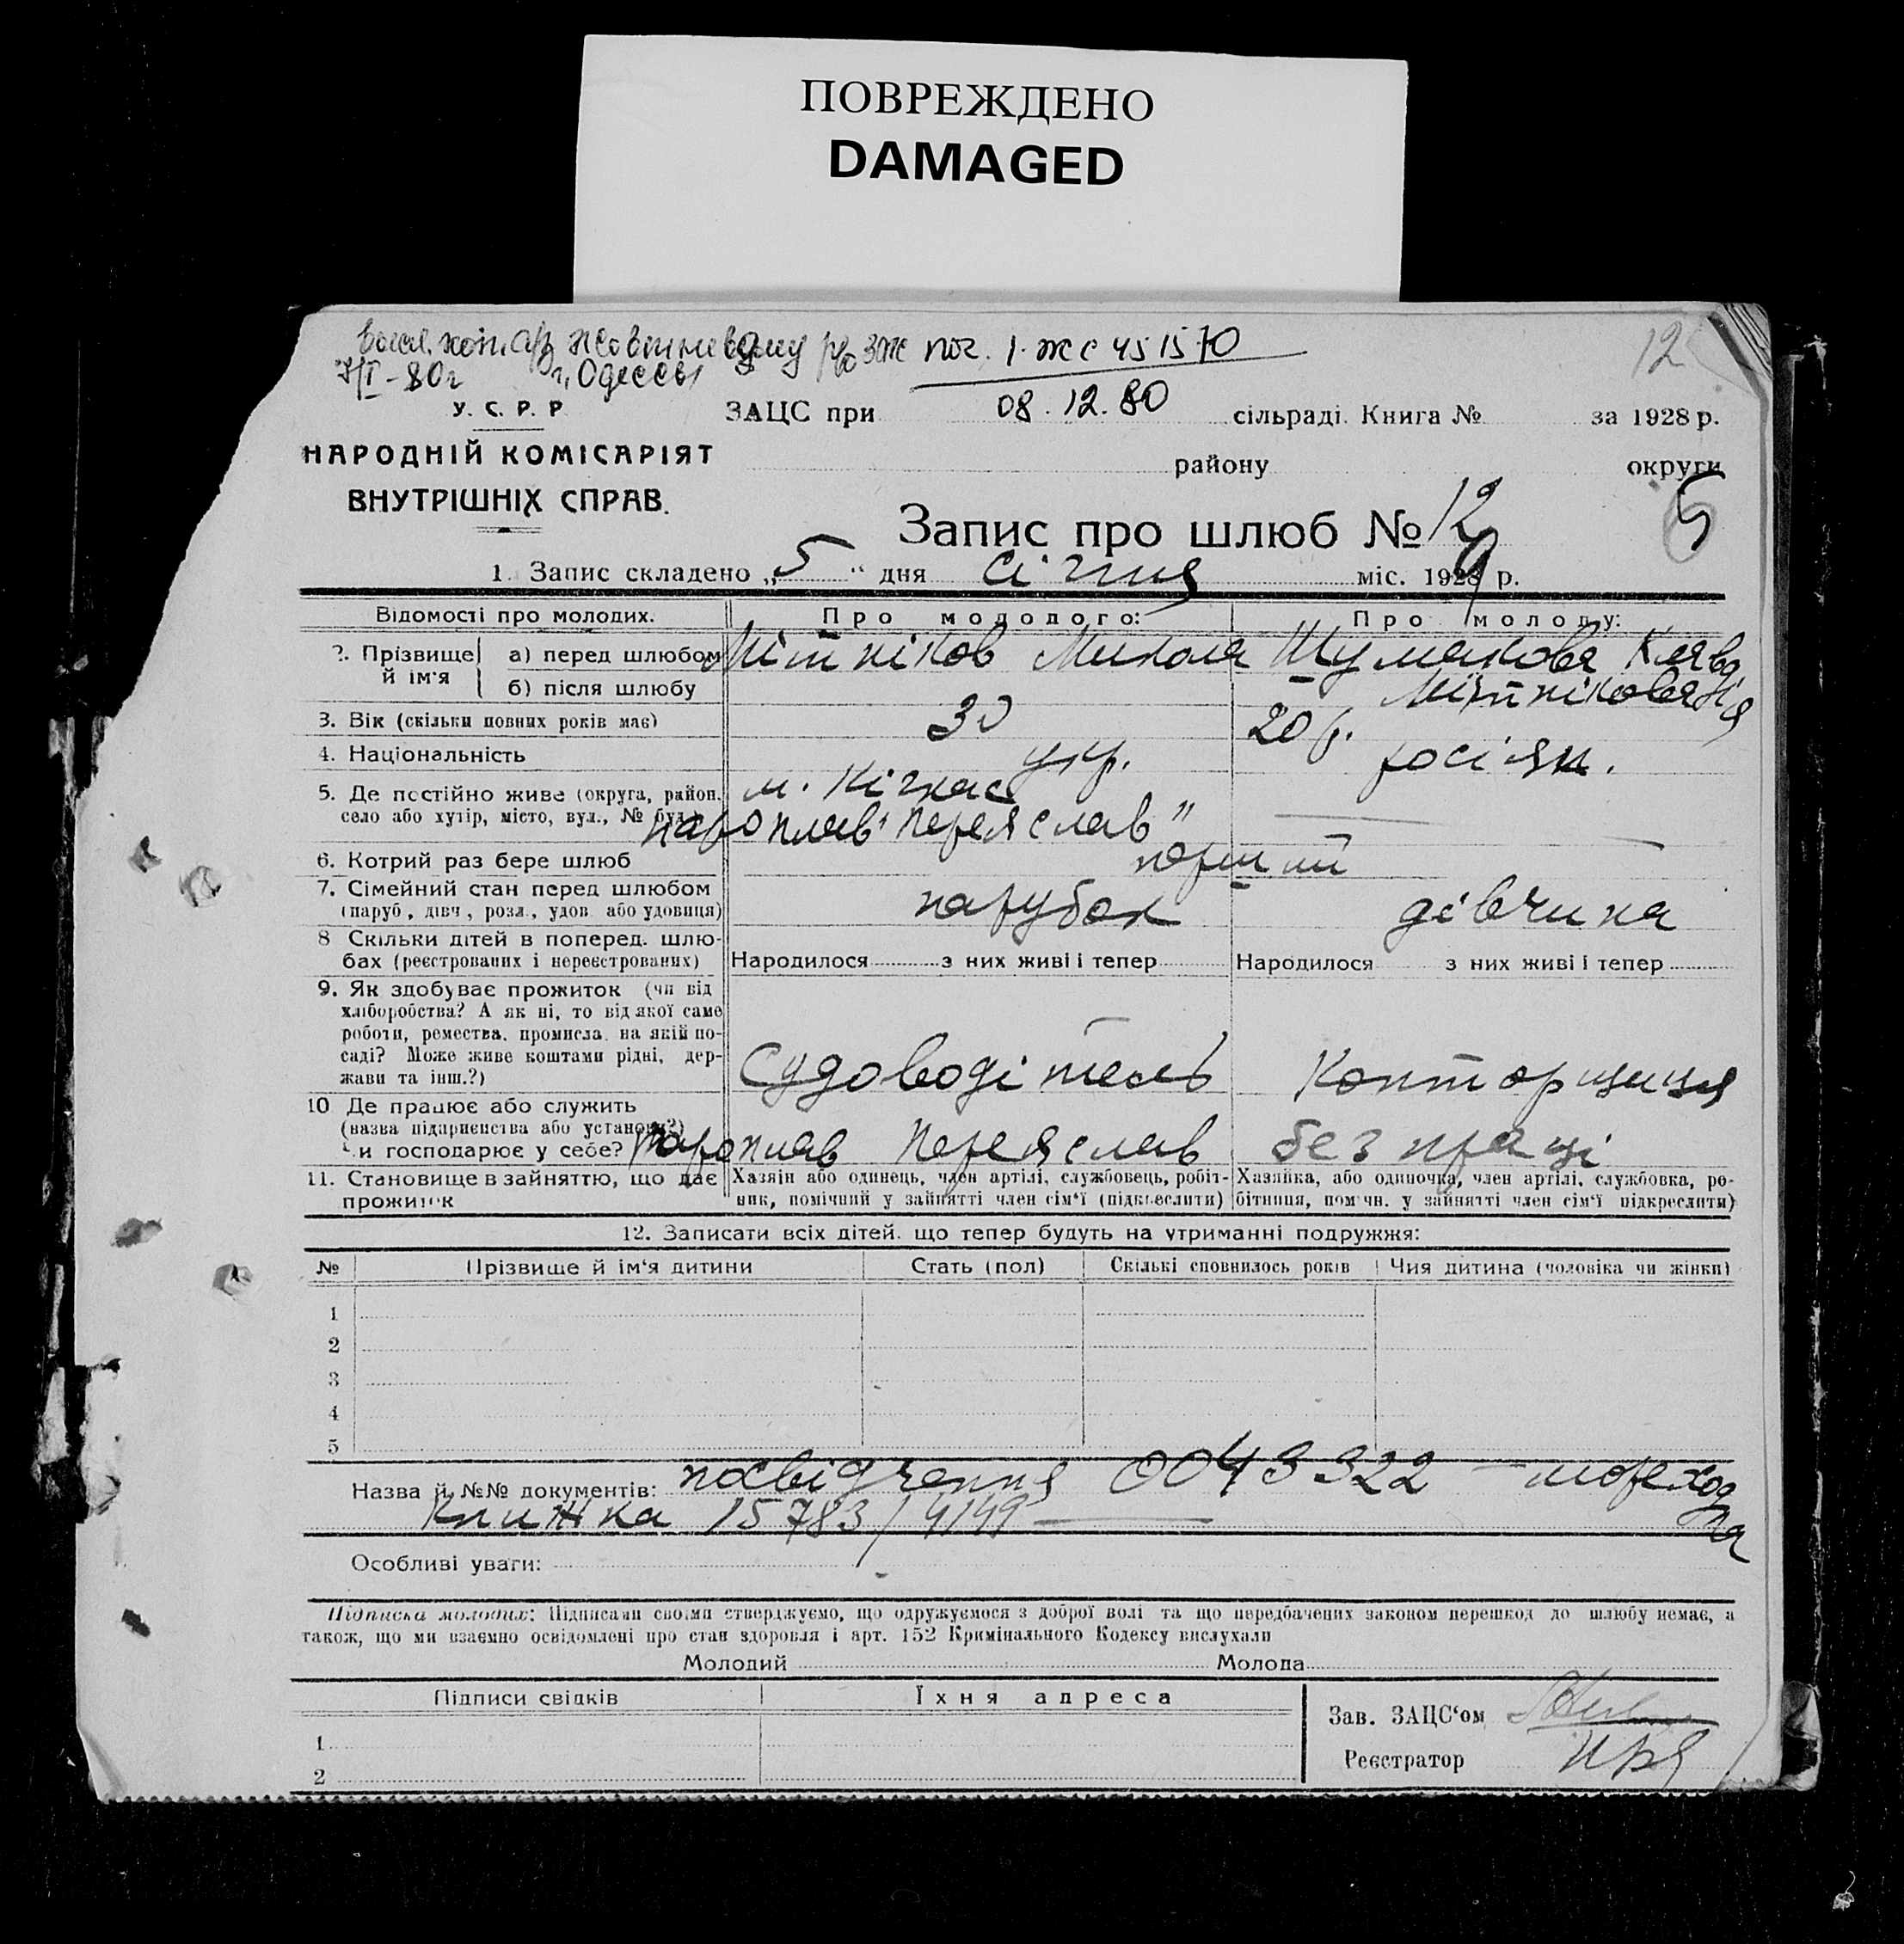 ПОВРЕЖДЕНО
DAMAGED
пог. 1-жс 451570
г. Одессы
08.12.80
12
У. С. Р. Р.
НАРОДНІЙ КОМІСАРІЯТ
ВНУТРІШНІХ СПРАВ.
ЗАЦС при сільраді. Книга № за 1928 р.
району округи
5
Запис про шлюб № 12
1. Запис складено „5“ дня січня міс. 1929 р.
Відомості про молодих. Про молодого: Про молоду:
2. Прізвище й ім'я
а) перед шлюбом Мітніков Микола Шумакова Клавдія
б) після шлюбу Мітнікова
3. Вік (скільки повних років має) 30 20 р.
4. Національність укр. росіян.
5. Де постійно живе (округа, район, м. Кічкас
село або хутір, місто, вул., № буд.) пароплав „Переяслав"
6. Котрий раз бере шлюб перший
7. Сімейний стан перед шлюбом
(паруб., дівч., розл., удов. або удовиця) парубок дівчина
8 Скільки дітей в поперед. шлю-
бах (реєстрованих і нереєстрованих) Народилося з них живі і тепер Народилося з них живі і тепер
9. Як здобуває прожиток (чи від
хліборобства? А як ні, то від якої саме
роботи, ремества, промисла, на якій по-
саді? Може живе коштами рідні, дер-
жави та інш.?) Судоводітель Конторщиця
10 Де працює або служить
(назва підприємства або установи?)
Чи господарює у себе? пароплав Переяслав без праці
11. Становище в зайняттю, що дає
прожиток
Хазяїн або одинець, член артілі, службовець, робіт-
ник, помічний у зайнятті член сім'ї (підкреслити)
Хазяйка, або одиночка, член артілі, службовка, ро-
бітниця, помічн. у зайнятті член сім'ї підкреслити)
12. Записати всіх дітей, що тепер будуть на утриманні подружжя:
№ Прізвище й ім'я дитини Стать (пол) Скількі сповнилось років Чия дитина (чоловіка чи жінки)
1
2
3
4
5
Назва й №№ документів: посвідчення 0043322 — мореходна
книжка 15783/4149
Особливі уваги:
Підписка молодих: Підписами своїми стверджуємо, що одружуємося з доброї волі та що передбачених законом перешкод до шлюбу немає, а
також, що ми взаємно освідомлені про стан здоровля і арт. 152 Кримінального Кодексу вислухали
Молодий Молода
Підписи свідків Їхня адреса
Зав. ЗАЦС'ом
1
Реєстратор
2